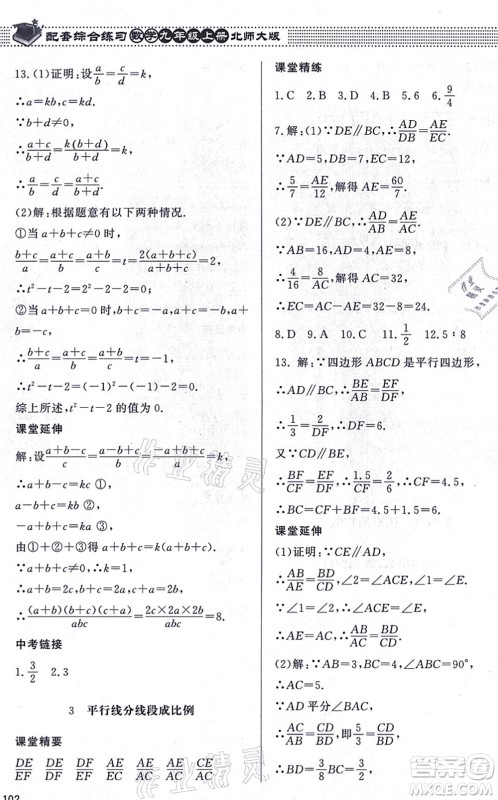 配套综合练习 数学九年级上册 北师大版
13.(1)证明:设a/b=c/d=k,
∴a=kb,c=kd.
∵b+d≠0,
∴(a+c)/(b+d)=k(b+d)/(b+d)=k,
∴a/b=c/d=(a+c)/(b+d).
(2)解:根据题意有以下两种情况.
①当a+b+c≠0时,
(b+c)/a=(a+c)/b=(a+b)/c=t=2(a+b+c)/(a+b+c)=2,
∴t²-t-2=2²-2-2=0;
②当a+b+c=0时,b+c=-a,a+c=-b,a+
b=-c,
∴(b+c)/a=(a+c)/b=(a+b)/c=t=-1,
∴t²-t-2=(-1)²-(-1)-2=0.
综上所述,t²-t-2的值为0.
课堂延伸
解:设(a+b-c)/c=(a-b+c)/b=(-a+b+c)/a=k,
∴a+b-c=kc ①,
a-b+c=kb ②,
-a+b+c=ka ③,
由①+②+③,得
a+b+c=k(a+b+c).
∵a+b+c≠0,
∴k=1,
∴a+b=2c,b+c=2a,c+a=2b,
∴(a+b)(b+c)(c+a)/abc=2c×2a×2b/abc=8.
中考链接
1.3/2 2.3
3 平行线分线段成比例
课堂精要
DE/EF DE/DF AB/BC AB/AC AE/EC AE/AC
102
课堂精练
1.C 2.B 3.A 4.B 5.6 6.9/4
7.解:(1)∵DE∥BC,∴AD/DB=AE/EC.
∵AD=5,DB=7,EC=12,
∴5/7=AE/12,解得AE=60/7.
(2)∵DE∥BC,∴AD/AB=AE/AC.
∵AB=16,AD=4,AE=8,
∴4/16=8/AC,解得AC=32,
∴EC=AC-AE=32-8=24.
8.D 9.A 10.C 11.1/2 12.5∶8
13.解:∵四边形ABCD是平行四边形,
∴AD∥BF,∴BE/AE=EF/DF,
∴1/3=2/DF,∴DF=6.
又∵CD∥BE,
∴BF/CF=EF/DF,∴1.5/CF=2/6,∴CF=4.5,
∴BC=BF+CF=4.5+1.5=6.
课堂延伸
(1)证明:∵CE∥AD,
∴AB/AE=BD/CD,∠2=∠ACE,∠1=∠E.
∵∠1=∠2,∴∠ACE=∠E,
∴AE=AC,∴AB/AC=BD/CD.
(2)解:∵AB=5,AC=3,∠ABC=90°,
∴BC=4.
∵AD平分∠BAC,
∴AB/AC=BD/CD,即5/3=BD/CD,
∴BD=3/8BC=3/8×4=3/2.